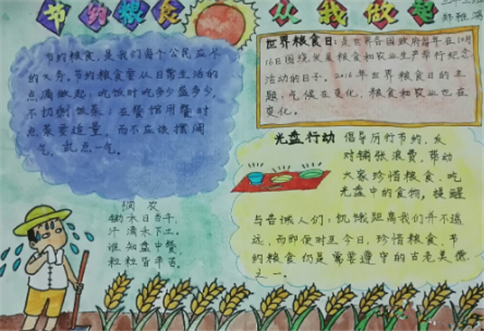 节约粮食 从我做起
节约粮食,是我们每个公民应尽
的义务。节约粮食要从日常生活的
点滴做起:吃饭时吃多少盛多少,
不扔剩饭菜;在餐馆用餐时
点菜要适量,而不应该摆阔
气,乱点一气。
世界粮食日:是世界各国政府每年在10月
16日围绕发展粮食和农业生产举行纪念
活动的日子。2016年世界粮食日的主
题:气候在变化,粮食和农业也在
变化。
光盘行动 倡导厉行节约,反
对铺张浪费,带动
大家珍惜粮食、吃
光盘中的食物,提醒
与告诫人们:饥饿距离我们并不遥
远,而即便时至今日,珍惜粮食、节
约粮食仍是需要遵守的古老美德
之一。
悯农
锄禾日当午,
汗滴禾下土。
谁知盘中餐,
粒粒皆辛苦。